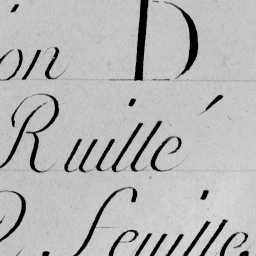 on D
Ruillé
Q. feuille